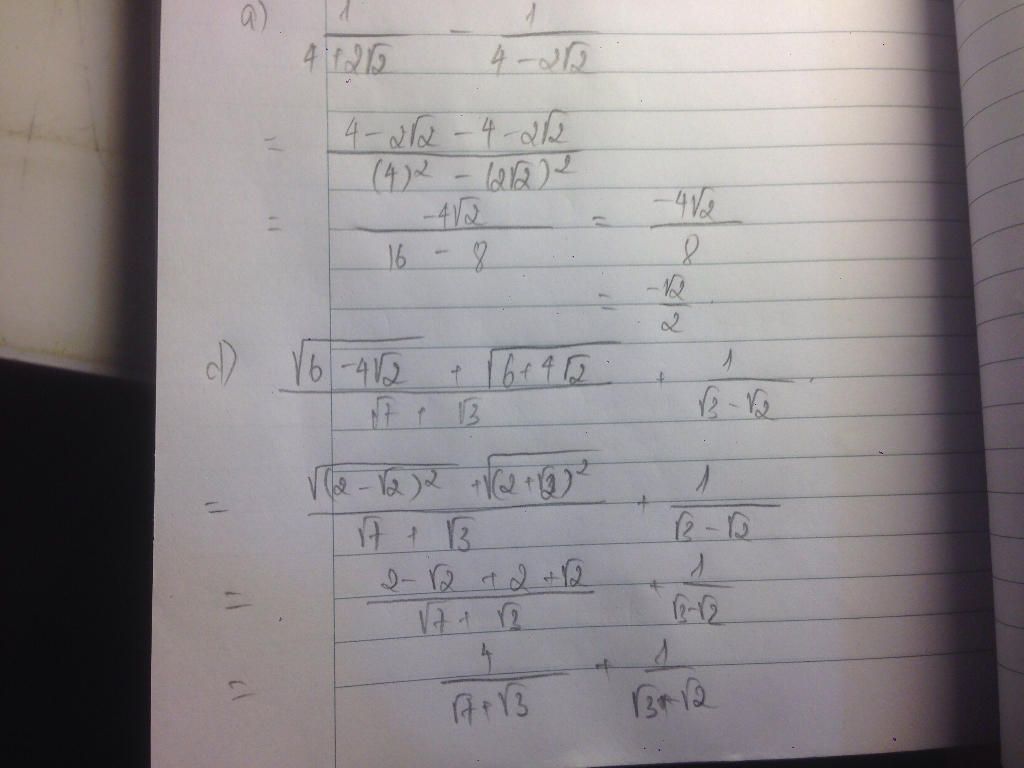 a) 1/(4 + 2√2) - 1/(4 - 2√2)
= (4 - 2√2 - 4 - 2√2)/((4)² - (2√2)²)
= (-4√2)/(16 - 8) = (-4√2)/8
= (-√2)/2
d) (√(6 - 4√2) + √(6 + 4√2))/(√7 + √3) + 1/(√3 - √2)
= (√((2 - √2)²) + √((2 + √2)²))/(√7 + √3) + 1/(√3 - √2)
= (2 - √2 + 2 + √2)/(√7 + √3) + 1/(√3 - √2)
= 4/(√7 + √3) + 1/(√3 - √2)